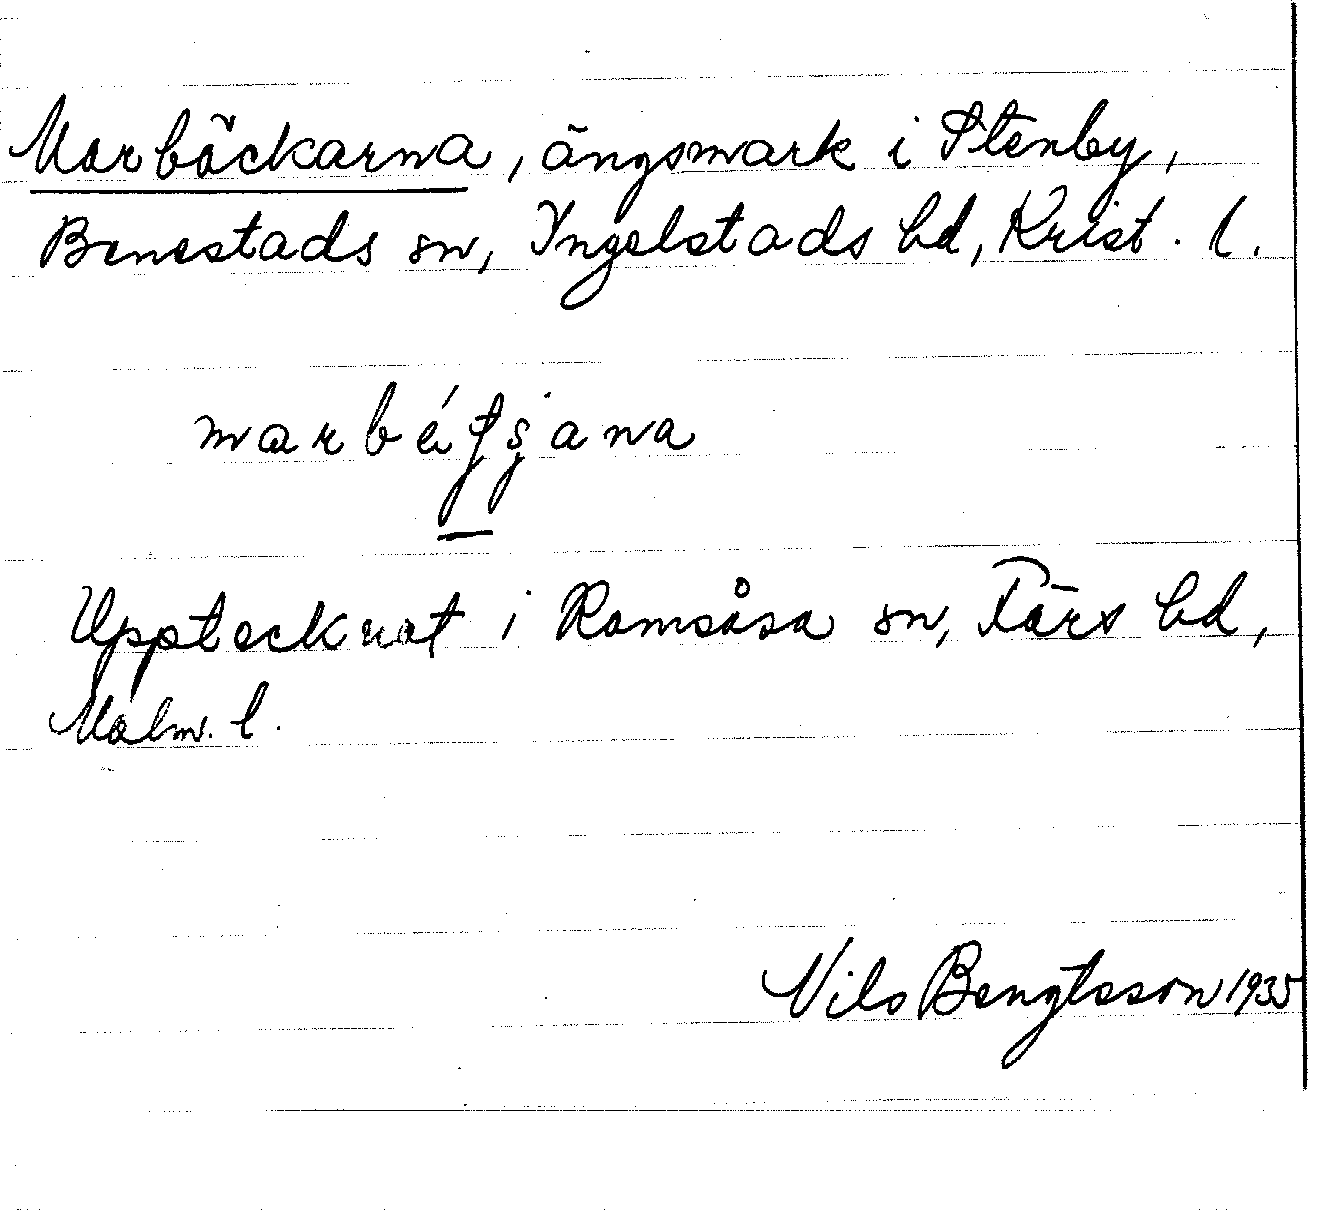 Marbäckarna, ängsmark i Stenby,
Benestads sn, Ingelstads hd, Krist. l.
Upptecknat i Ramsåsa sn, Färs hd,
Malm. l.
Nils Bengtsson 1935